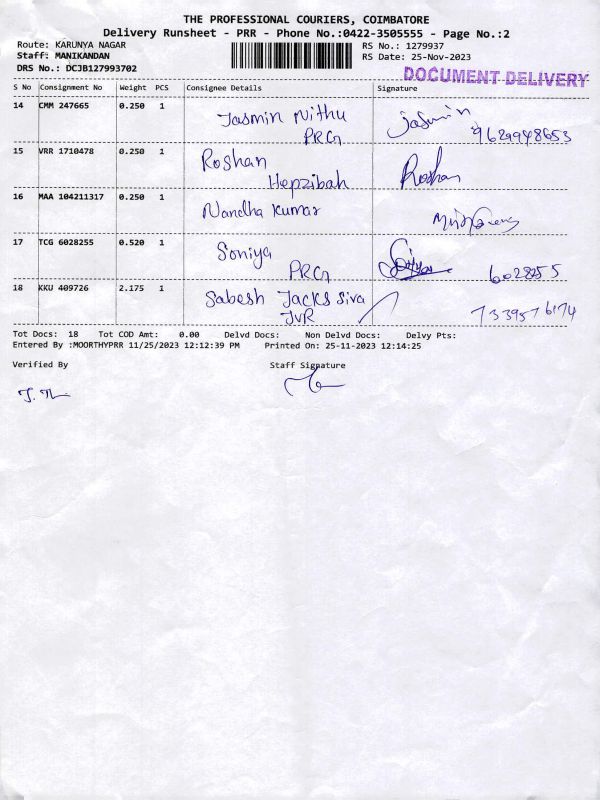 THE PROFESSIONAL COURIERS, COIMBATORE
Delivery Runsheet - PRR - Phone No.:0422-3505555 - Page No.:2
Route: KARUNYA NAGAR RS No.: 1279937
Staff: MANIKANDAN RS Date: 25-Nov-2023
DRS No.: DCJB127993702 DOCUMENT DELIVERY
S No Consignment No Weight PCS Consignee Details Signature
14 CMM 247665 0.250 1 Jasmin Nithu Jasmin
PRGn 9629948653
15 VRR 1710478 0.250 1 Roshan Roshan
Hepzibah
16 MAA 104211317 0.250 1 Nandha Kumar
17 TCG 6028255 0.520 1 Soniya
PRGn 6028255
18 KKU 409726 2.175 1 Sabesh Jacks Siva
JVR 7339576174
Tot Docs: 18 Tot COD Amt: 0.00 Delvd Docs: Non Delvd Docs: Delvy Pts:
Entered By :MOORTHYPRR 11/25/2023 12:12:39 PM Printed On: 25-11-2023 12:14:25
Verified By Staff Signature